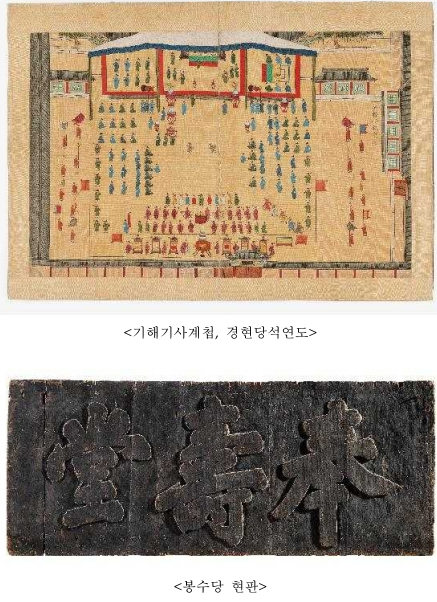 <기해기사계첩, 경현당석연도>
奉壽堂
<봉수당 현판>